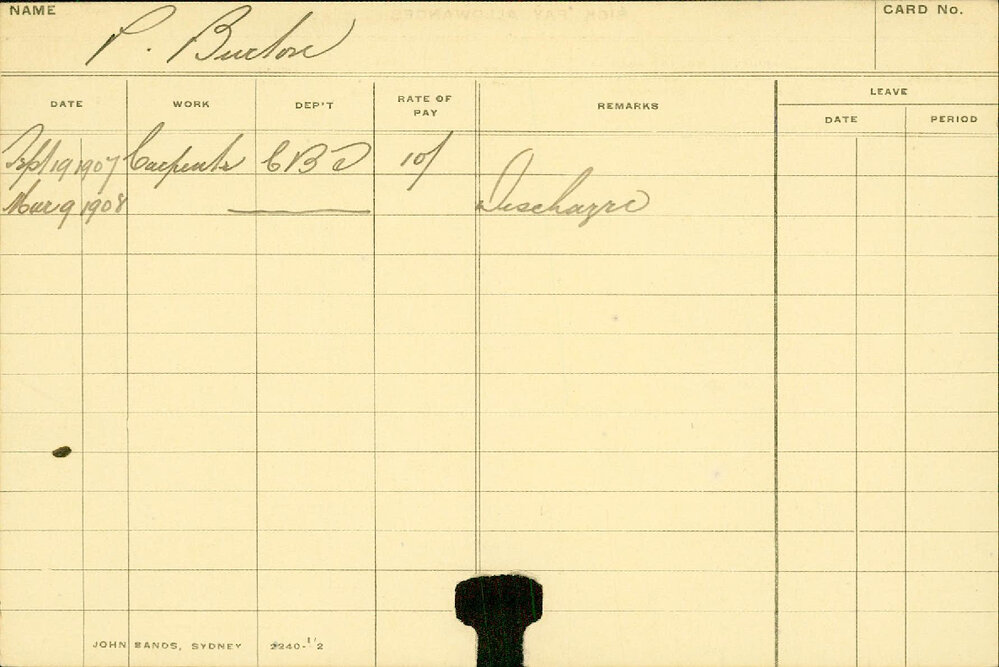 NAME P. Burton CARD No.
DATE WORK DEP'T RATE OF PAY REMARKS LEAVE
DATE PERIOD
Sept 19 1907 Carpenter 10/
Mar 9 1908 Discharge
JOHN SANDS, SYDNEY 2240-1/2